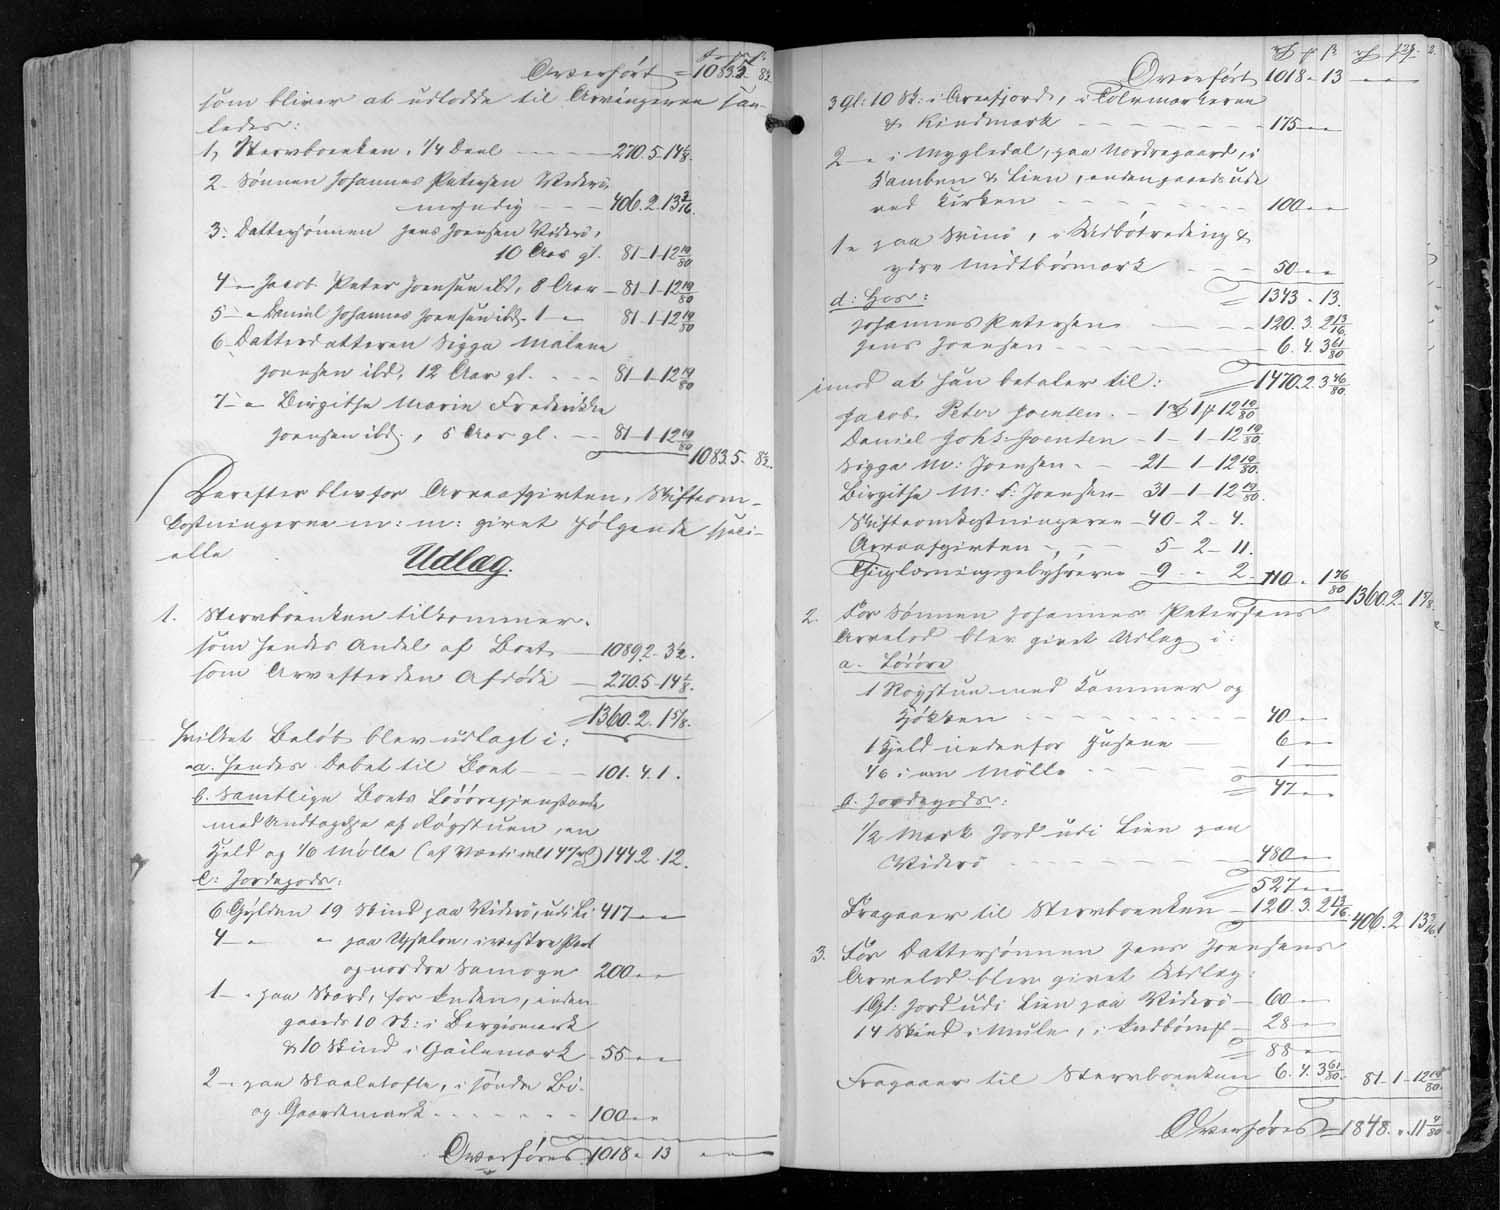 Overført = 1083.5 8½
som bliver at udlodde til Arvingerne saa-
ledes:
1, Stervboenken, 1/4 Deel — 270.5.14⅛.
2 - Sønnen Johannes Petersen Viderø
myndig — 406.2.13 3/16.
3: Dattersønnen Jens Joensen Viderø,
10 Aar gl. 81-1-12 19/80
4 - Jacob Peter Joensen ibd, 8 Aar — 81-1-12 19/80
5 - " Daniel Johannes Joensen ibd. 1 — " 81-1-12 19/80
6 - Datterdatteren Sigga Malene
Joensen ibd, 12 Aar gl. — 81-1-12 19/80
7 - " Birgithe Marie Frederikke
Joensen ibd., 5 Aar gl. — 81-1-12 19/80
1083.5. 8½.
Derefter blev for Arveafgivten, Skifteom-
kostningerne m: m: givet følgende speci-
elle
Udlæg.
1. Stervboenken tilkommer.
som hendes Andel af Boet — 1089.2. 3½.
som Arv efter den Afdøde — 270.5-14⅛.
1360.2.1 5/8.
hvilket Beløb blev udlagt i:
a. hendes Debet til Boet — 101.4.1.
b. Samtlige Boets Løsøregjenstande
med Undtagelse af Røgstuen, en
Hjeld og 1/6 Mølle (af Værdi ialt 47 rd) 144.2.12.
C: Jordegods:
6 Gylden 19 Skind paa Viderø, udi Li 417 " "
4 — " " paa Ypsalon, i vestre Part
og nordre Samogn 200 " "
1 — " paa Skard, for Inden, inden
gaards 10 Sk: i Bergismark
& 10 Skind i Gailemark — 55 " "
2 — " paa Skaaletofte, i søndre Bø-
og Gaardemark - - - - 100 " "
Overføres 1018 " 13 " " "
Overført 1018 " 13 " " "
3 gl: 10 Sk: i Arnefjord, i Tolvmarkerne
& Kindmark - - - - 175 " "
2 — " i Mygledal, paa Nordregaard, i
Tamben & Lien, endengaards ude
ved Kirken - - - - 100 " "
1 " paa Svinø, i Udbøtreding &
ydre Midtbørmark - - - 50 " "
d: Hos: = 1343 " 13.
Johannes Petersen — 120.3.2 13/16
Jens Joensen — 6.4.3 61/80
imod at hun betaler til: = 1470.2.3 46/80.
Jacob Peter Joensen. — 1 rd 1 12 19/80
Daniel Johs: Joensen — 1 — 1 — 12 19/80
Sigga M: Joensen. — 21 — 1 — 12 19/80.
Birgithe M: F: Joensen — 31 — 1 — 12 19/80.
Skifteomkostningerne — 40 - 2 - 4.
Arveafgivten — 5 — 2 — 11.
Thinglæsningsgebyhrerne — 9 " " 2. 110 " 1 76/80 1360.2 1 5/8.
2. For Sønnen Johannes Petersens
Arvelod blev givet Udlæg i:
a. Løsøre
1 Røgstue med Kammer og
Kjøkken - - - - 40 " "
1 Hjeld nedenfor Husene — 6 " "
1/6 i en Mølle - - - 1 " "
= 47 " "
b. Jordegods:
1/2 Mark Jord udi Lien paa
Viderø - - - 480 " "
= 527 " "
Fragaaer til Stervboenken — 120.3.2 13/16 406.2.13 3/16
3. For Dattersønnen Jens Joensens
Arvelod blev givet Udlæg:
1 Gl: Jord udi Lien paa Viderø — 60 "
14 Skind i Mule, i Indbømk — 28 " "
= 88 " "
Fragaaer til Stervboenken 6.4.3 61/80. 81-1-12 19/80.
Overføres = 1848. " 11 4/80